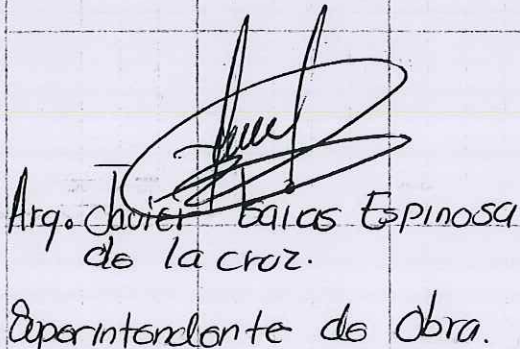 Arq. Javier Isaias Espinosa
de la cruz.
Superintendente de Obra.